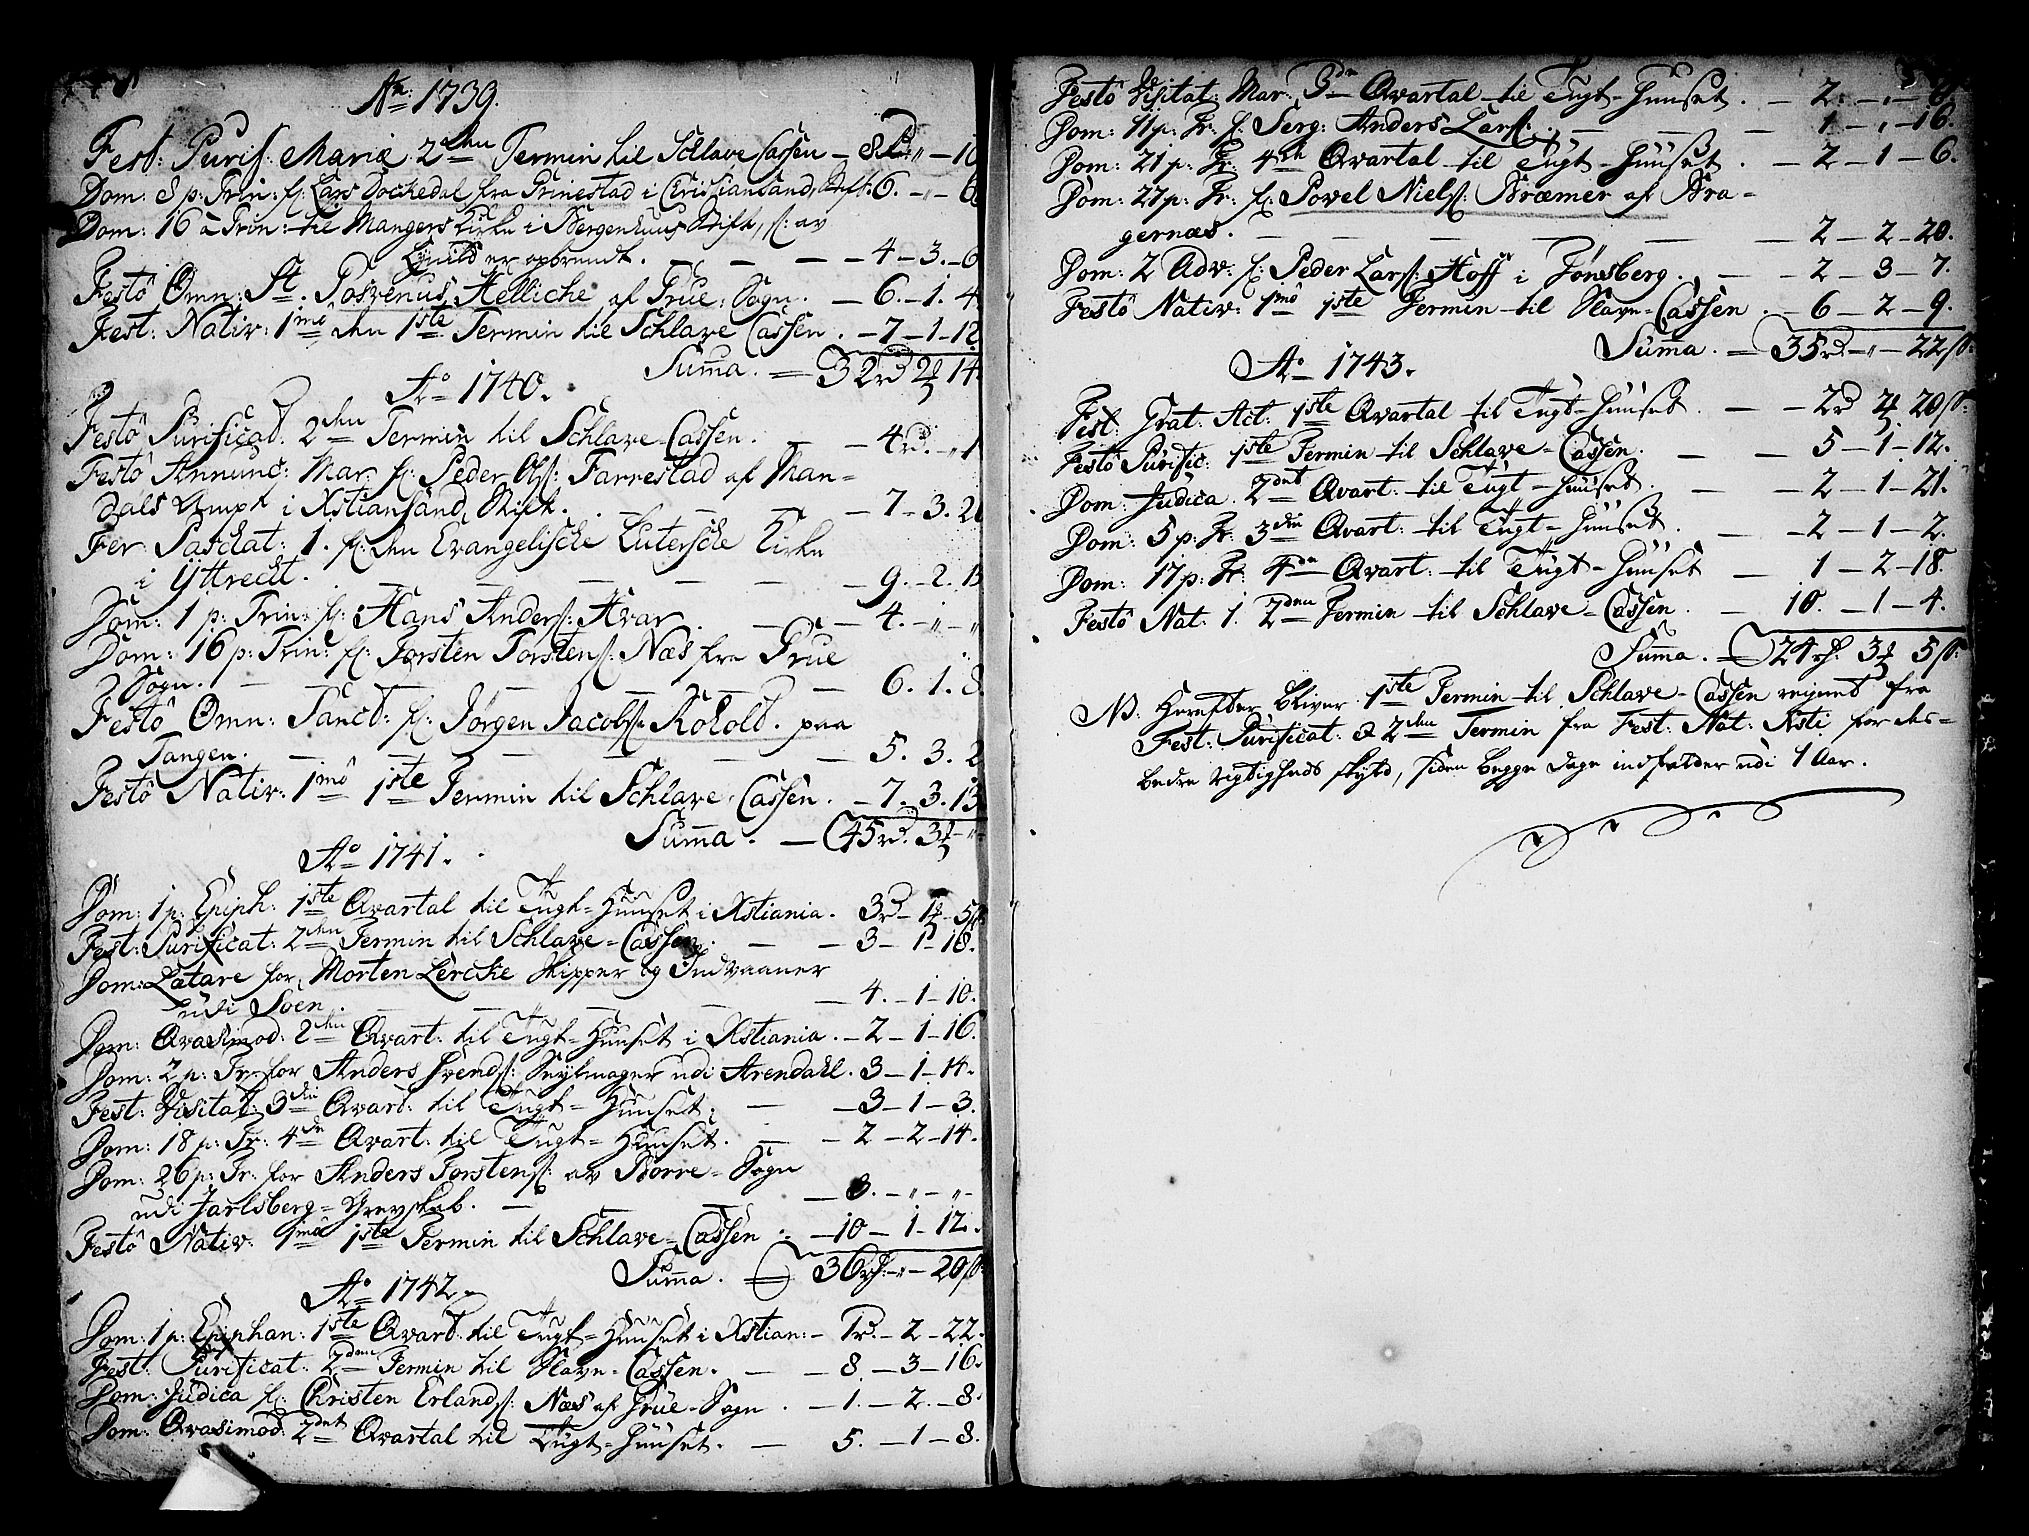 Ao 1739.
Fest: Purif: Mariæ 2den Termin til Schlave Cassen – 8 rd – " – 10
Dom: 8 p: Trin: f: Lars Dockedal fra in Christiansand Stift 6. – " – 6
Dom: 16 a Trin: til Mangers Kirke i Bergenhuus Stift, s: av
Lynild er opbrendt. – 4 – 3. – 6
Festô Omn: St. Helliche af True: Sogn. – 6. – 1. 4
Fest: Nativ: 1mô den 1ste Termin til Schlave Cassen. – 7 – 1 – 12
Summa. = 32 rd 2 14
Ao 1740.
Festô Purificat. 2den Termin til Schlave-Cassen. – 4 rd. " 1
Festô Annunc: Mar: f: Peder Ols: Farrestad af Man=
dals Ampt i Xstiansand Stift. – 7. 3. 20
Fer: Paschat: 1. f: den Evangelische Luttersche Kirke
i Yttrecht. – 9. – 2. 13
Dom: 1 p: Trin: f: Hans Anders: Hvar. – 4. – " – "
Dom: 16 p: Trin: f: Torsten Torstens: Næs fra True
Sogn. – 6. 1. 8.
Festô Omn: Sanct: f: Jørgen Jacobs: Kohold. paa
Tangen. – 5. 3. 2
Festô Nativ: 1mô 1ste Termin til Schlave-Cassen. – 7. 3. 13
Summa. – 45 rd. 3 – "
Ao 1741.
Dom: 1 p: Epiph: 1ste Qvartal til Tugt=Huuset i Xstiania. 3 rd – 1 – 5 s:
Fest: Purificat: 2den Termin til Schlave=Cassen. – 3 – 1 – 18.
Dom: Lætare for Morten Lercke Skipper og Indvaaner
udi Soen. – 4. – 1 – 10.
Dom: Qvasimod: 2den Qvart: til Tugt=Huuset i Xstiania. – 2 – 1 – 16.
Dom: 2 p: Tr: for Anders Svends: udi Arendahl. 3 – 1 – 14.
Fest: Visitat: 3die Qvart: til Tugt=Huuset: – 3 – 1 – 3.
Dom: 18 p: Tr: 4de Qvart: til Tugt=Huuset. – 2 – 2 – 14.
Dom: 26 p: Tr: for Anders Torstens: av Borre=Sogn
udi Jarlsberg=Grevskab. – 3. – " – "
Festô Nativ: 1mô 1ste Termin til Schlave=Cassen: – 10 – 1 – 12.
Summa. = 36 rd: " – 20 s:
Ao 1742.
Dom: 1 p: Epiphan: 1ste Qvart: til Tugt=Huuset i Xstian: – 1 rd. – 2 – 22.
Fest: Purificat: 2den Termin til Slave=Cassen. – 8. – 3 – 16.
Dom: Judica f: Christen Erlands: Næs af True=Sogn. – 1. – 2. – 8.
Dom: Qvasimod: 2det Qvartal til Tugt=Huuset. – 5. – 1 – 8.
Festô Visitat: Mar: 3die Qvartal til Tugt=Huuset. – 2. – " – 8.
Dom: 11 p: Tr: f: Serg: Anders Lars: – 1 – " – 16.
Dom: 21 p: Tr: 4de Qvartal til Tugt=Huuset. – 2 – 1 – 6.
Dom: 27 p: Tr: f: Povel Niels: Bræmer af Bra=
gernæs. – 2 – 2 – 20.
Dom: 2 Adv: f: Peder Lars: Hoff i Tønsberg. – 2 – 3 – 7.
Festô Nativ: 1mô 1ste Termin til Slave=Cassen. – 6 – 2 – 9.
Summa. = 35 rd. – " – 22 s:
Ao 1743.
Fest: Grat: Act: 1ste Qvartal til Tugt=Huuset. – 2 rd 2 20 s:
Festô Purific: 1ste Termin til Schlave=Cassen. – 5 – 1 – 12.
Dom: Judica 2det Qvart: til Tugt=Huuset. – 2 – 1 – 21.
Dom: 5 p: Tr: 3die Qvart: til Tugt=Huuset. – 2 – 1 – 2.
Dom: 17 p: Tr: 4de Qvart: til Tugt=Huuset – 1 – 2 – 18.
Festô Nat: 1. 2den Termin til Schlave=Cassen. – 10. – 1 – 4.
Summa. = 24 rd: 3 5 s:
NB: Herefter bliver 1ste Termin til Schlave=Cassen reignet fra
Fest: Purificat: & 2den Termin fra Fest: Nat: Xsti for des=
bedre rigtigheds skyld, siden begge dage indfalder udi 1 Aar.